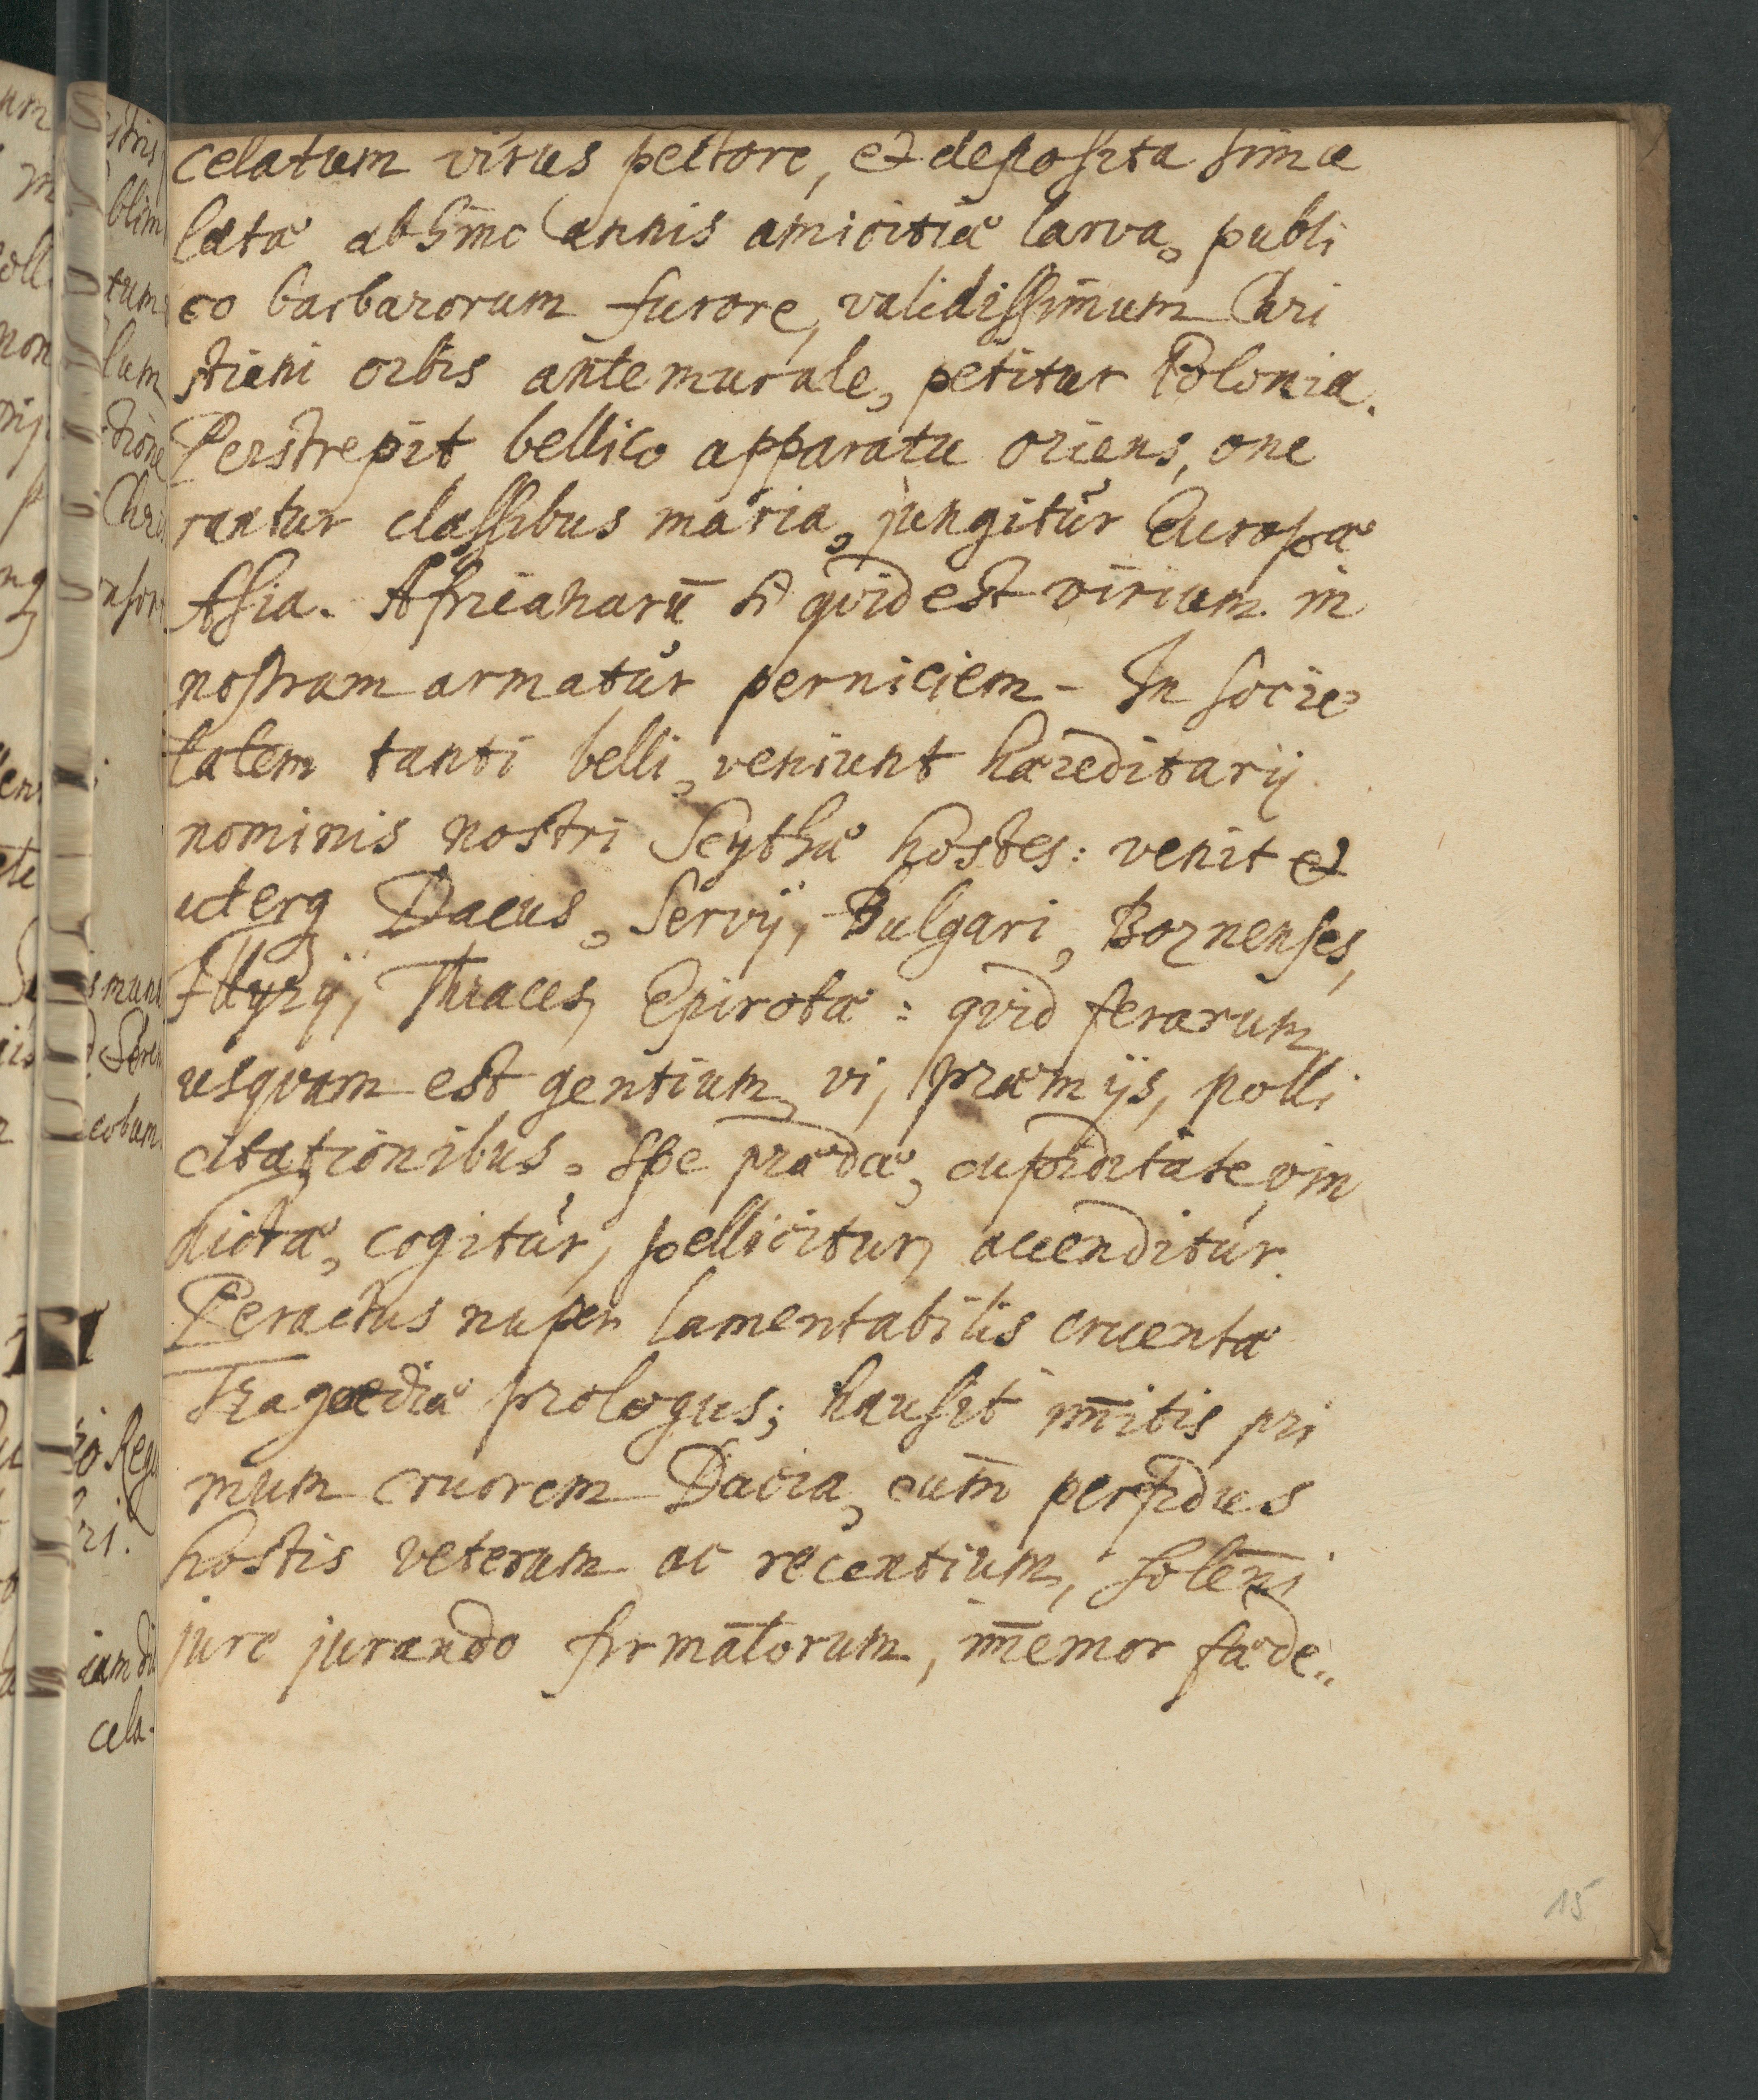 celatum virus pectore, et deposita simu
latæ abhinc C annis amicitiæ larva, publi
co barbarorum furore, validissimum Chri
stiani orbis antemurale, petitur Polonia.
Perstrepit bellico apparatu oriens, one
rantur classibus maria, jungitur Europæ
Asia. Africanarū si qvid est virium in
nostram armatur perniciem - In socie
tatem tanti belli, veniunt hæreditarij
nominis nostri Scythæ hostes: venit et
uterq Dacus, Servij, Bulgari, Boznenses,
Illyrij, Thraces, Epirotæ: qvid ferarum
usqvam est gentium, vi, præmijs, polli
citationibus, spe prædæ, cupiditate vin
dictæ, cogitur, pellicitur, accenditur.
Peractus nuper lamentabilis cruentæ
Tragædiæ prologus; hausit im̄itis pri
mum cruorem Dacia, cum perfidus
hostis veterum ac recentium, solen̄i
jure jurando firmatorum, im̄emor fæde..
15
cela-